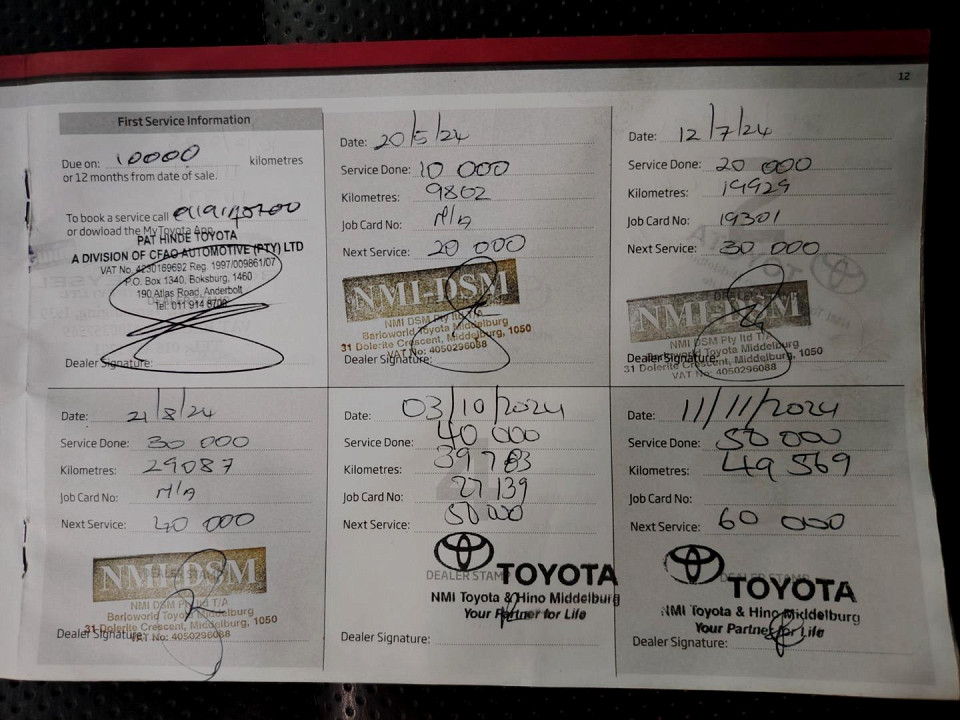 12
First Service Information
Due on: 10000 kilometres
or 12 months from date of sale.
To book a service call
or dowload the MyToyota App
PAT HINDE TOYOTA
A DIVISION OF CFAO AUTOMOTIVE (PTY) LTD
VAT No. 4230169692 Reg. 1997/009861/07
P.O. Box 1340, Boksburg, 1460
190 Atlas Road, Anderbolt
Tel: 011 914 8700
Dealer Signature:
Date: 20/5/24
Service Done: 10 000
Kilometres: 9802
Job Card No: N/A
Next Service: 20 000
NMI-DSM
NMI DSM Pty ltd T/A
Barloworld Toyota Middelburg
31 Dolerite Crescent, Middelburg, 1050
VAT No: 4050296088
Dealer Signature:
Date: 12/7/24
Service Done: 20 000
Kilometres: 19929
Job Card No: 19301
Next Service: 30 000
NMI-DSM
NMI DSM Pty ltd T/A
Barloworld Toyota Middelburg
31 Dolerite Crescent, Middelburg, 1050
VAT No: 4050296088
Dealer Signature:
Date: 21/8/24
Service Done: 30 000
Kilometres: 29087
Job Card No: N/A
Next Service: 40 000
DEALER STAMP
NMI-DSM
NMI DSM Pty ltd T/A
Barloworld Toyota Middelburg
31 Dolerite Crescent, Middelburg, 1050
VAT No: 4050296088
Dealer Signature:
Date: 03/10/2024
Service Done: 40 000
Kilometres: 39783
Job Card No: 27139
Next Service: 50 000
DEALER STAMP
TOYOTA
NMI Toyota & Hino Middelburg
Your Partner for Life
Dealer Signature:
Date: 11/11/2024
Service Done: 50 000
Kilometres: 49 569
Job Card No:
Next Service: 60 000
DEALER STAMP
TOYOTA
NMI Toyota & Hino Middelburg
Your Partner for Life
Dealer Signature: